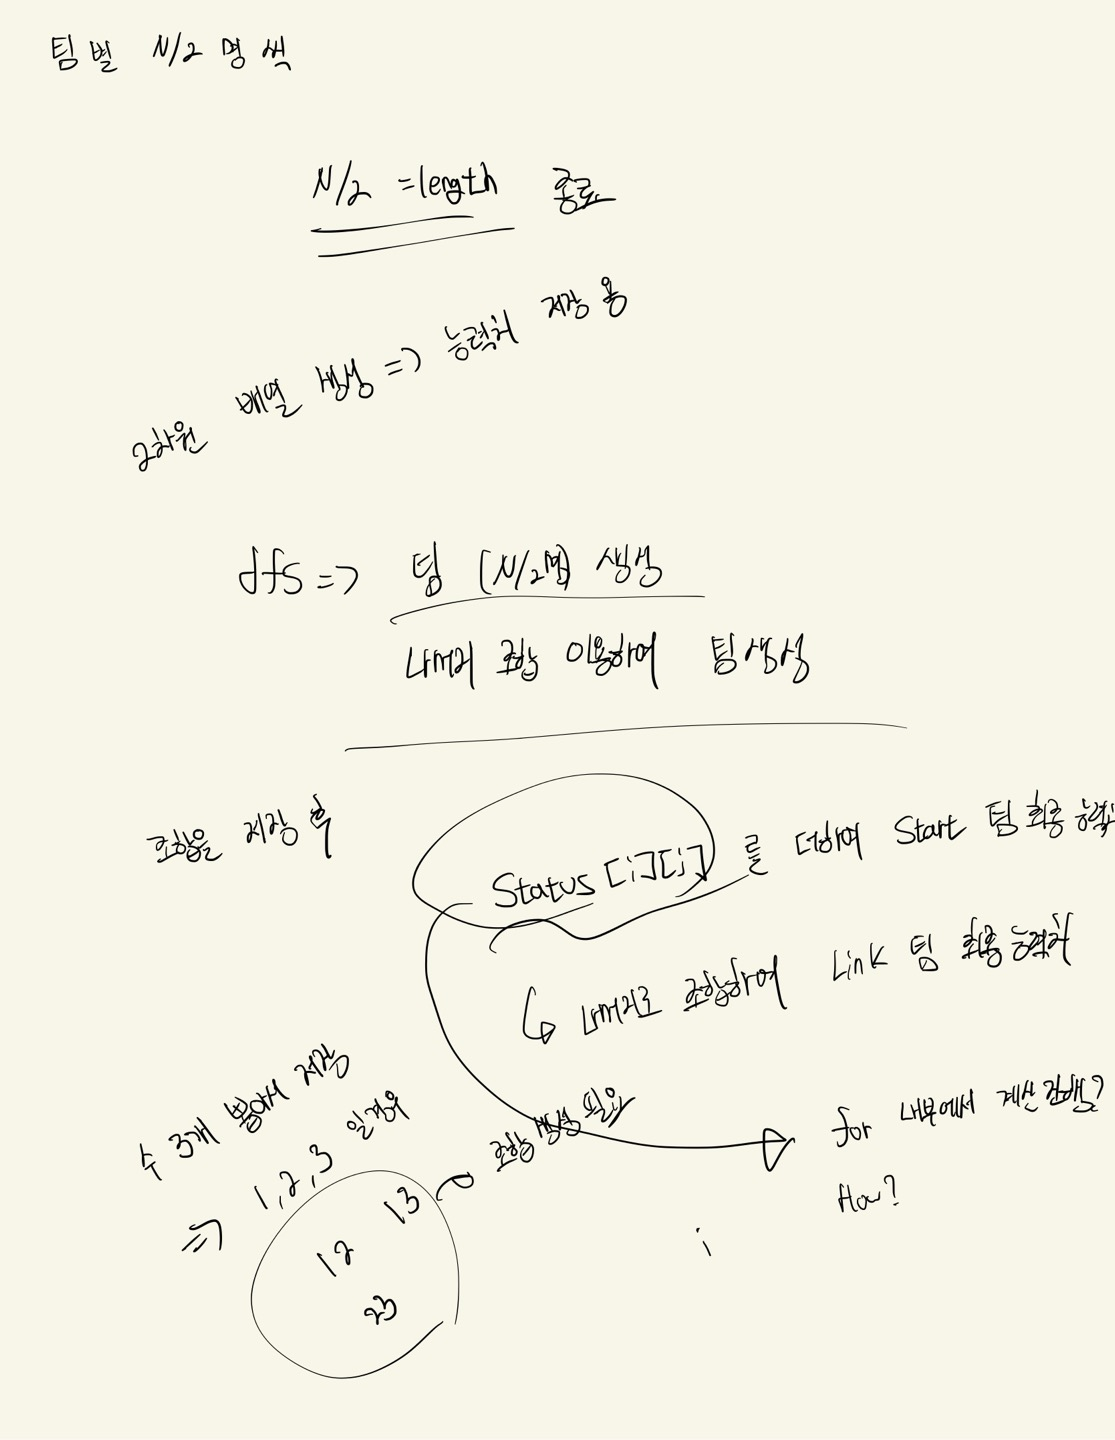 팀별 N/2 명씩
N/2 = length 종료
2차원 배열 생성 => 능력치 저장용
dfs => 팀 (N/2명) 생성
나머지 조합 이용하여 팀생성
조합을 저장 후
Status [i][j] 를 더하여 Start 팀 최종 능력치
↳ 나머지로 조합하여 Link 팀 최종 능력치
수 3개 뽑아서 저장
=> 1,2,3 일경우
12 13 조합 생성 필요
23
for 내부에서 계산 진행?
How?
i